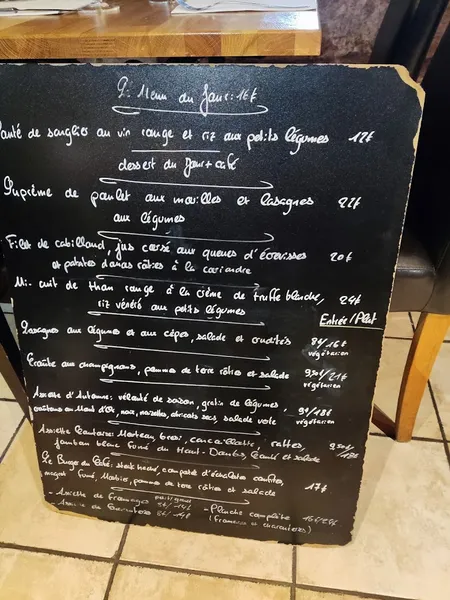 Menu du Jour : 16€
sauté de sanglier au vin rouge et riz aux petits légumes 12€
dessert du jour + café
Suprême de poulet aux morilles et lasagnes 22€
aux légumes
Filet de cabillaud, jus corsé aux queues d'écrevisses 20€
et patates douces rôties à la coriandre
Mi-cuit de thon rouge à la crème de truffe blanche, 24€
riz vénéré aux petits légumes
Entrée/Plat
Lasagnes aux légumes et aux cèpes, salade et crudités 9€/16€
végétarien
Croûte aux champignons, pommes de terre rôties et salade 9,50€/21€
végétarien
Assiette d'Automne: velouté de saison, gratin de légumes 9€/18€
croûtons au Mont d'Or, noix, noisettes, abricots secs, salade verte végétarien
Assiette Comtoise: Morteau, brési, cancoillotte, rattes, 9,50€/
jambon blanc fumé du Haut-Doubs, Comté et salade
Le Burger du Café: steak haché, compotée d'échalotes confites,
magret fumé, Morbier, pommes de terre rôties et salade 17€
- Assiette de fromages petit/grand
- Planche complète
(Fromages et charcuteries)